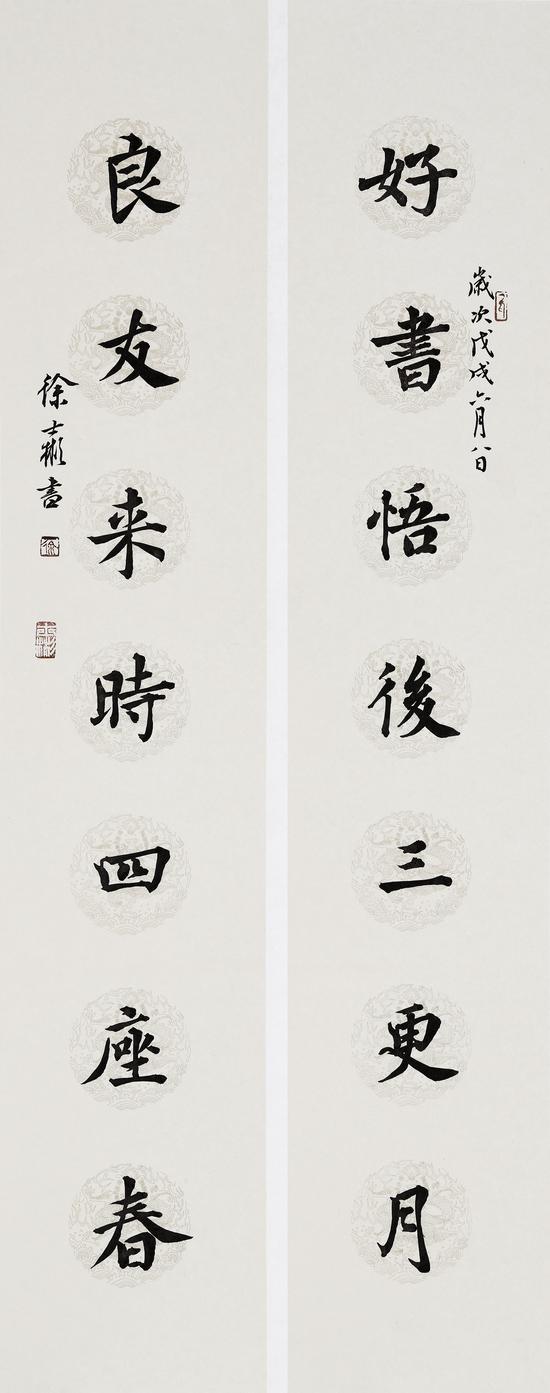 好書悟後三更月
歲次戊戌六月八日
良友来時四座春
徐士 書